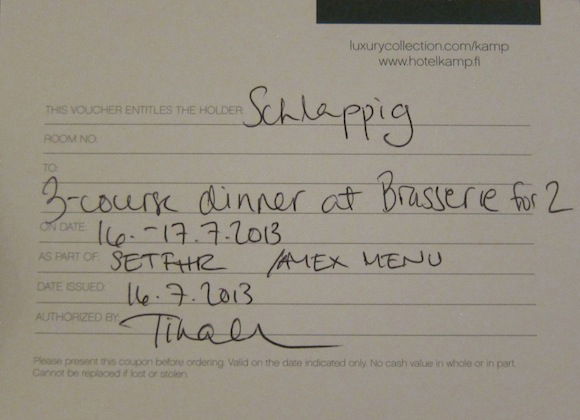 luxurycollection.com/kamp
www.hotelkamp.fi
THIS VOUCHER ENTITLES THE HOLDER Schlappig
ROOM NO:
TO:
3-course dinner at Brasserie for 2
ON DATE: 16.-17.7.2013
AS PART OF: SET FHR /AMEX MENU
DATE ISSUED: 16.7.2013
AUTHORIZED BY:
Please present this coupon before ordering. Valid on the date indicated only. No cash value in whole or in part.
Cannot be replaced if lost or stolen.